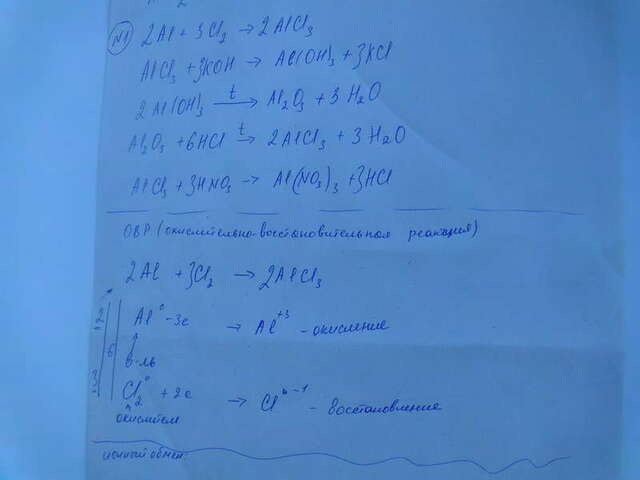 №1
2Al + 3Cl₂ → 2AlCl₃
AlCl₃ + 3KOH → Al(OH)₃ + 3KCl
2Al(OH)₃ —t→ Al₂O₃ + 3H₂O
Al₂O₃ + 6HCl —t→ 2AlCl₃ + 3H₂O
AlCl₃ + 3HNO₃ → Al(NO₃)₃ + 3HCl
ОВР (окислительно-восстановительная реакция)
2Al + 3Cl₂ → 2AlCl₃
Al⁰ - 3e → Al⁺³ - окисление
6
в-ль
Cl₂⁰ + 2e → Cl⁻¹ - восстановление
окислитель
ионный обмен: